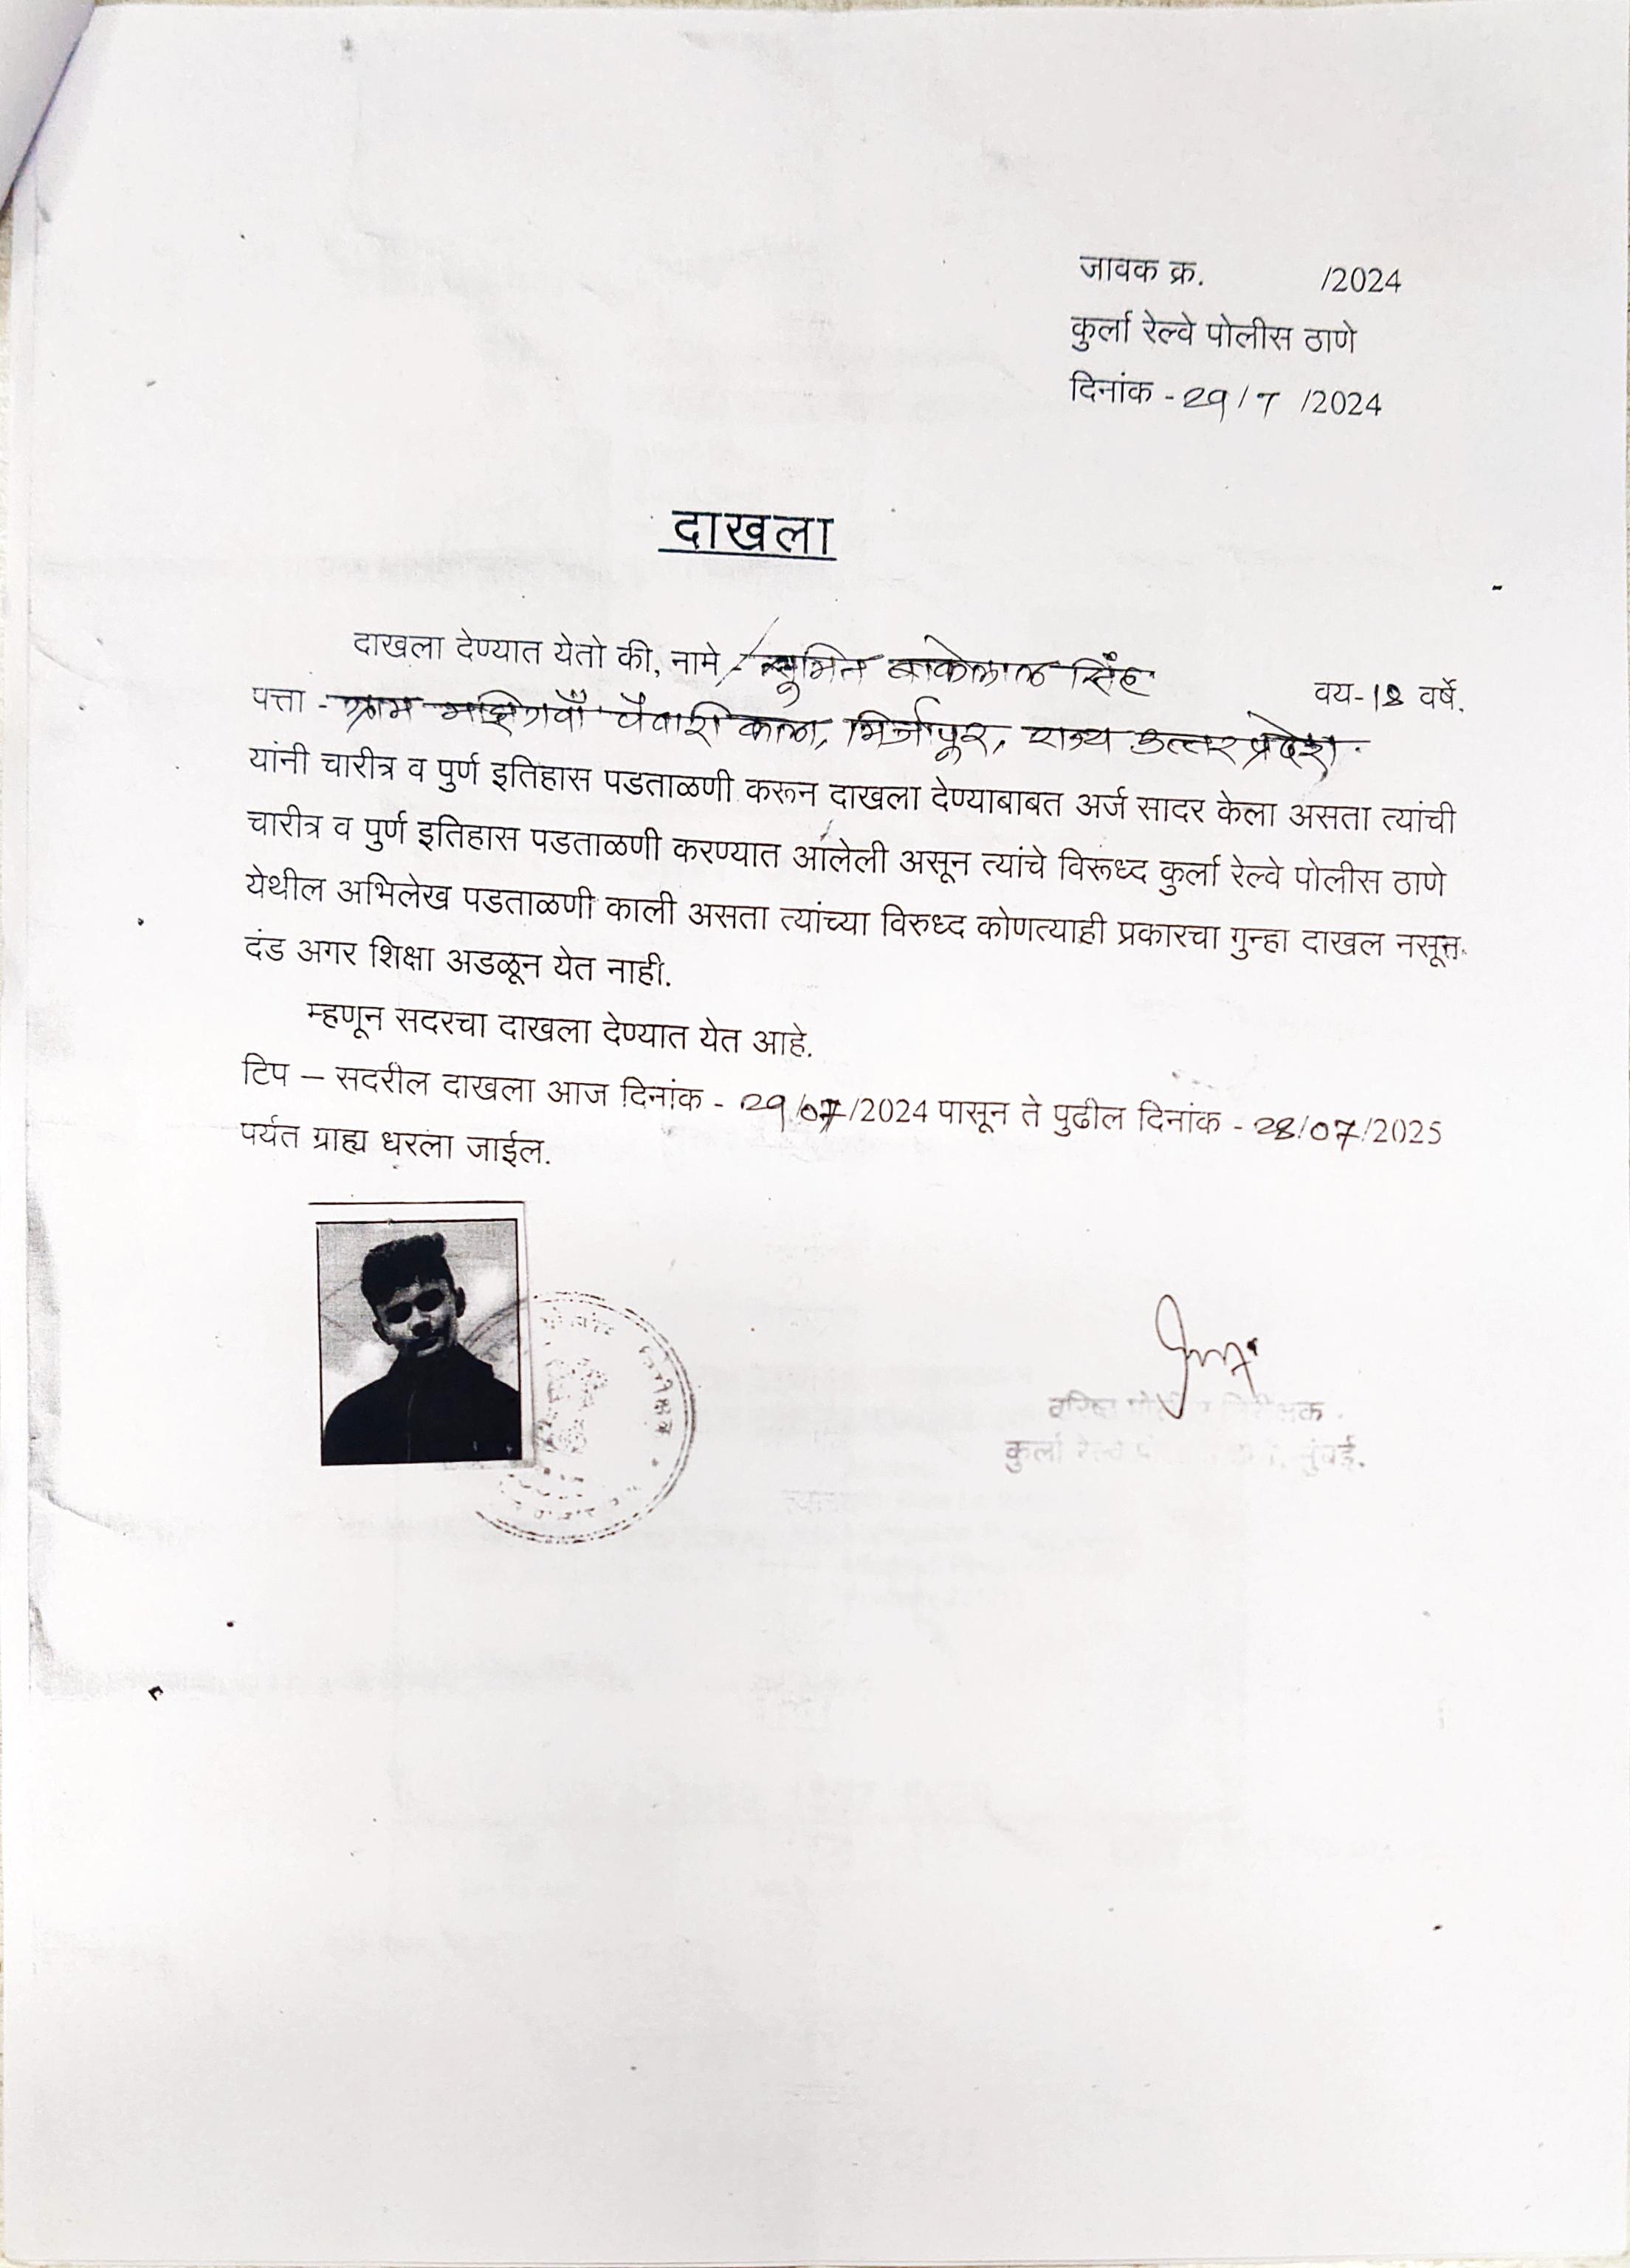 जावक क्र. /2024
कुर्ला रेल्वे पोलीस ठाणे
दिनांक - 29/7 /2024
दाखला
दाखला देण्यात येतो की, नामे सुमित सिंह वय-18 वर्षे.
पत्ता - ग्राम मिर्जापूर, राज्य उत्तर प्रदेश.
यांनी चारीत्र व पुर्ण इतिहास पडताळणी करून दाखला देण्याबाबत अर्ज सादर केला असता त्यांची
चारीत्र व पुर्ण इतिहास पडताळणी करण्यात आलेली असून त्यांचे विरूध्द कुर्ला रेल्वे पोलीस ठाणे
येथील अभिलेख पडताळणी काली असता त्यांच्या विरुध्द कोणत्याही प्रकारचा गुन्हा दाखल नसून
दंड अगर शिक्षा अडळून येत नाही.
म्हणून सदरचा दाखला देण्यात येत आहे.
टिप – सदरील दाखला आज दिनांक - 29/07/2024 पासून ते पुढील दिनांक - 28/07/2025
पर्यत ग्राह्य धरला जाईल.
वरिष्ठ निरीक्षक
कुर्ला रेल्वे मुंबई.